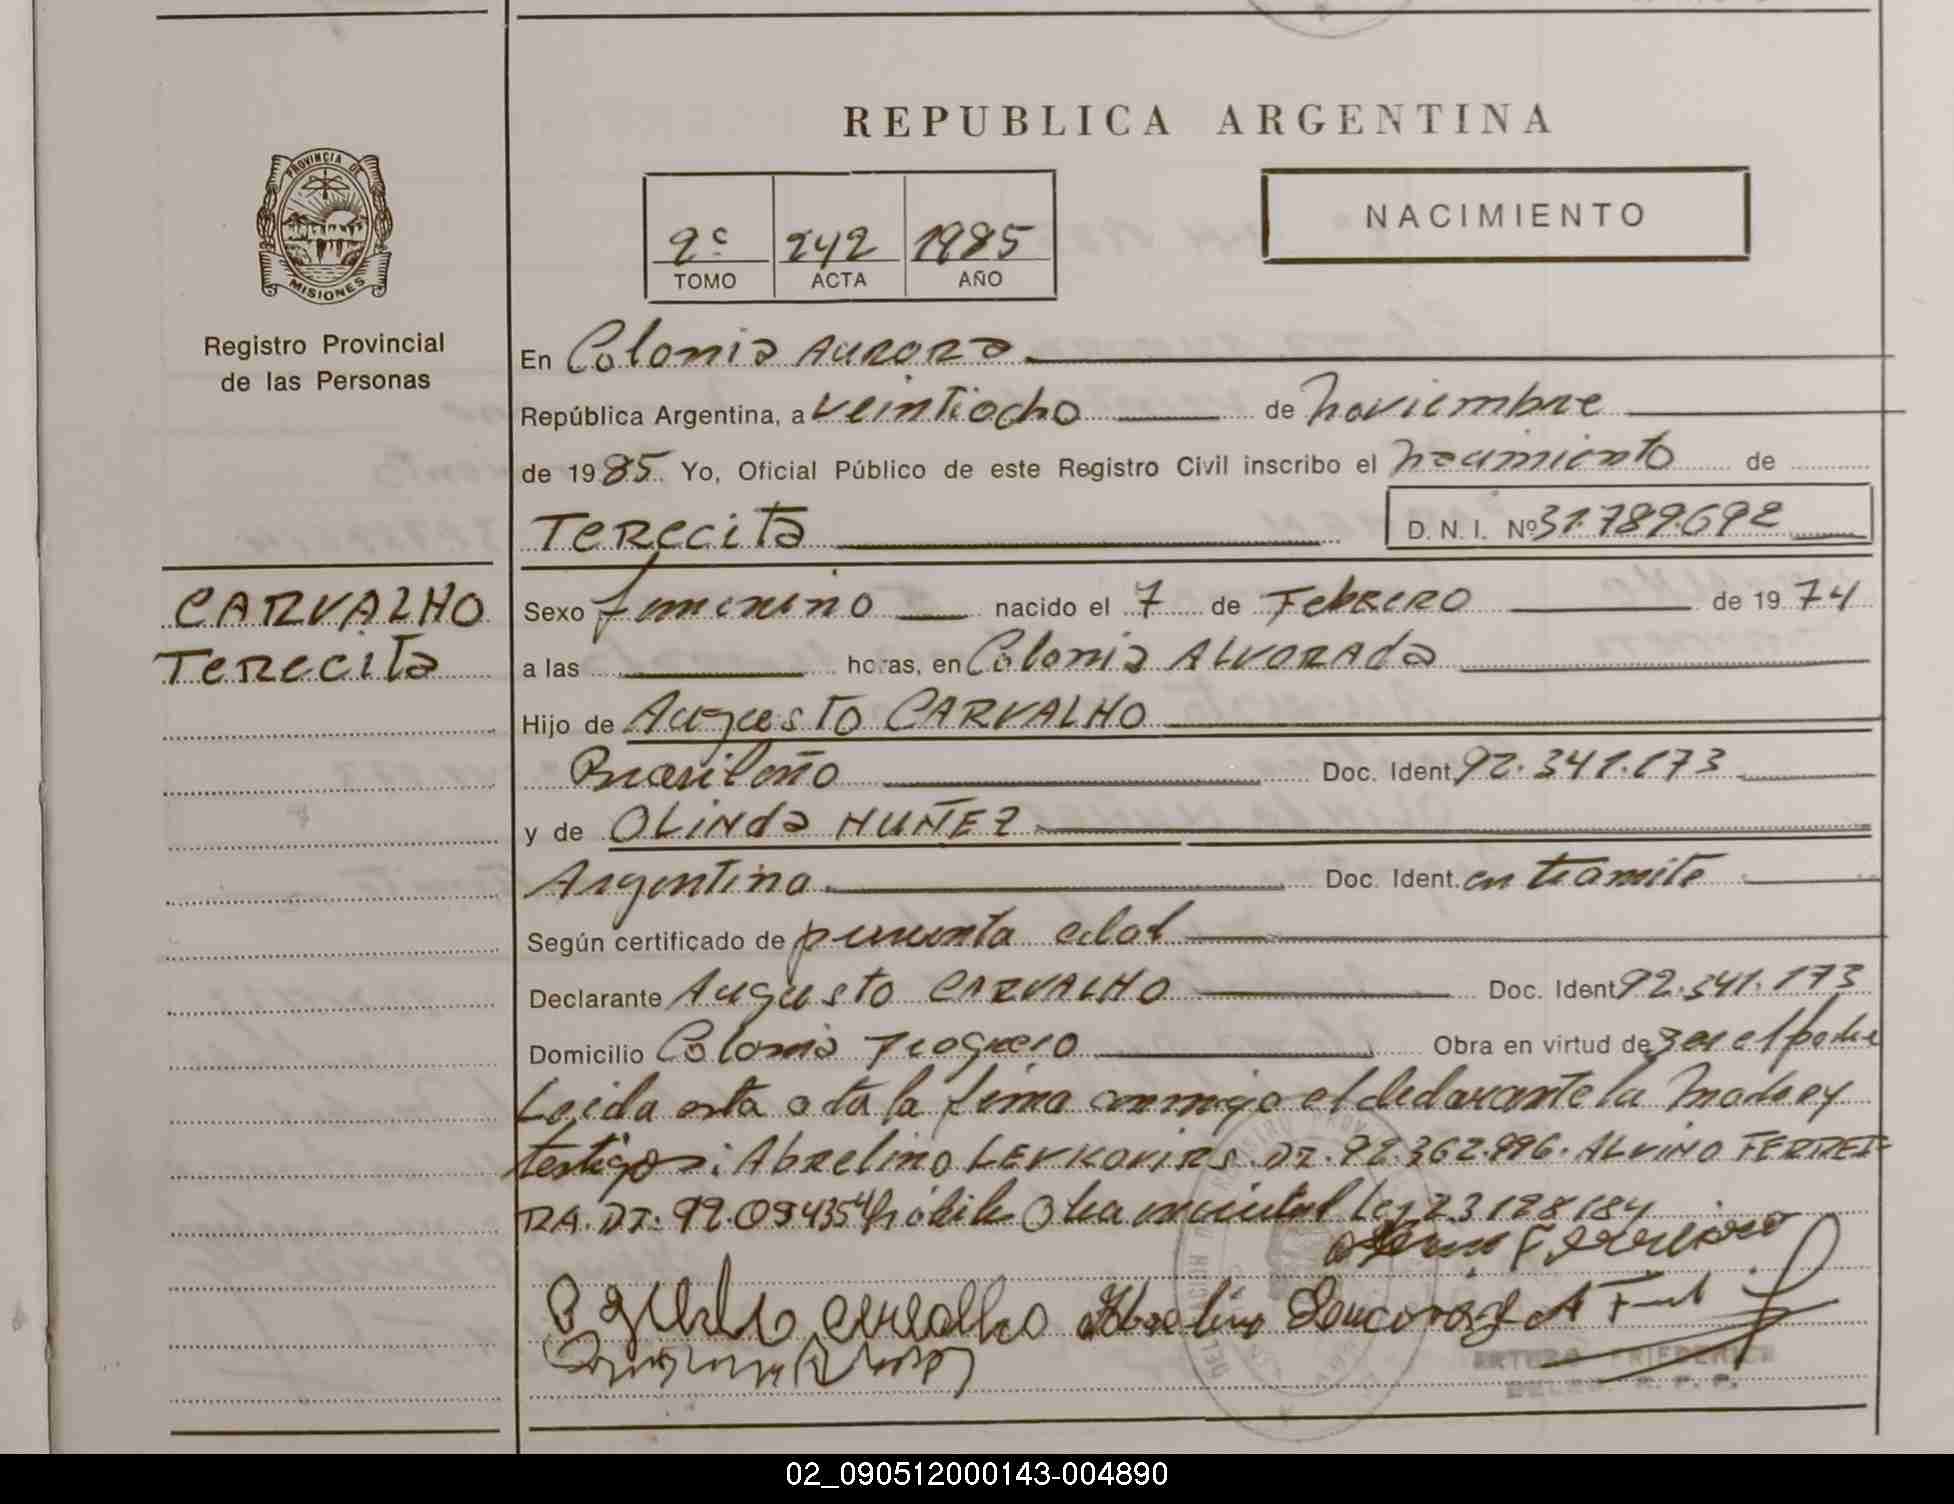 REPUBLICA ARGENTINA
PROVINCIA DE
MISIONES
Registro Provincial
de las Personas
2º 242 1985
TOMO ACTA AÑO
NACIMIENTO
En Colonia Aurora
República Argentina, a veintiocho de noviembre
de 1985. Yo, Oficial Público de este Registro Civil inscribo el nacimiento de
Terecita D. N. I. Nº 31.789.692
CARVALHO
Terecita
Sexo femenino nacido el 7 de Febrero de 1974
a las horas, en Colonia ALVORADA
Hijo de Augusto CARVALHO
Brasileño Doc. Ident. 92.341.173
y de OLINDA NUÑEZ
Argentina Doc. Ident. en tramite
Según certificado de presunta edad
Declarante Augusto CARVALHO Doc. Ident. 92.341.173
Domicilio Colonia Progreso Obra en virtud de ser el padre
Leida esta acta la firma conmigo el declarante la madre y
testigos: Abrelino DI. 92.362.996. ALVINO FERREI-
RA. DI. 92.094354 Ley 23128/84
ARTURO FRIEDERICH
DELEG. R. P. P.
02_090512000143-004890